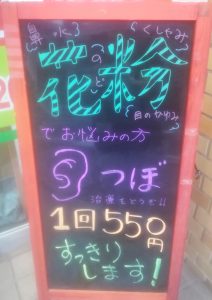 鼻水 くしゃみ
花粉
のど 目のかゆみ
でお悩みの方
つぼ
治療をどうぞ!!
1回550円
すっきり
します!